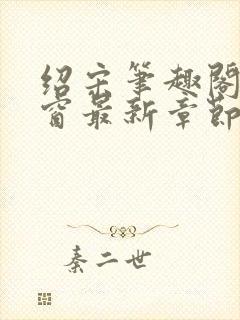 绍宋笔趣阁
窗最新章节
秦二世